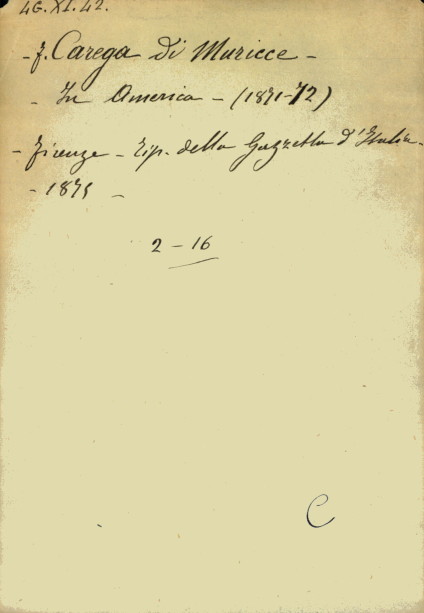 46.XI.42.
- f. Carega di Muricce -
- In America - (1871-72)
- Firenze - Tip. della Gazzetta d'Italia -
- 1875 -
2 - 16
C